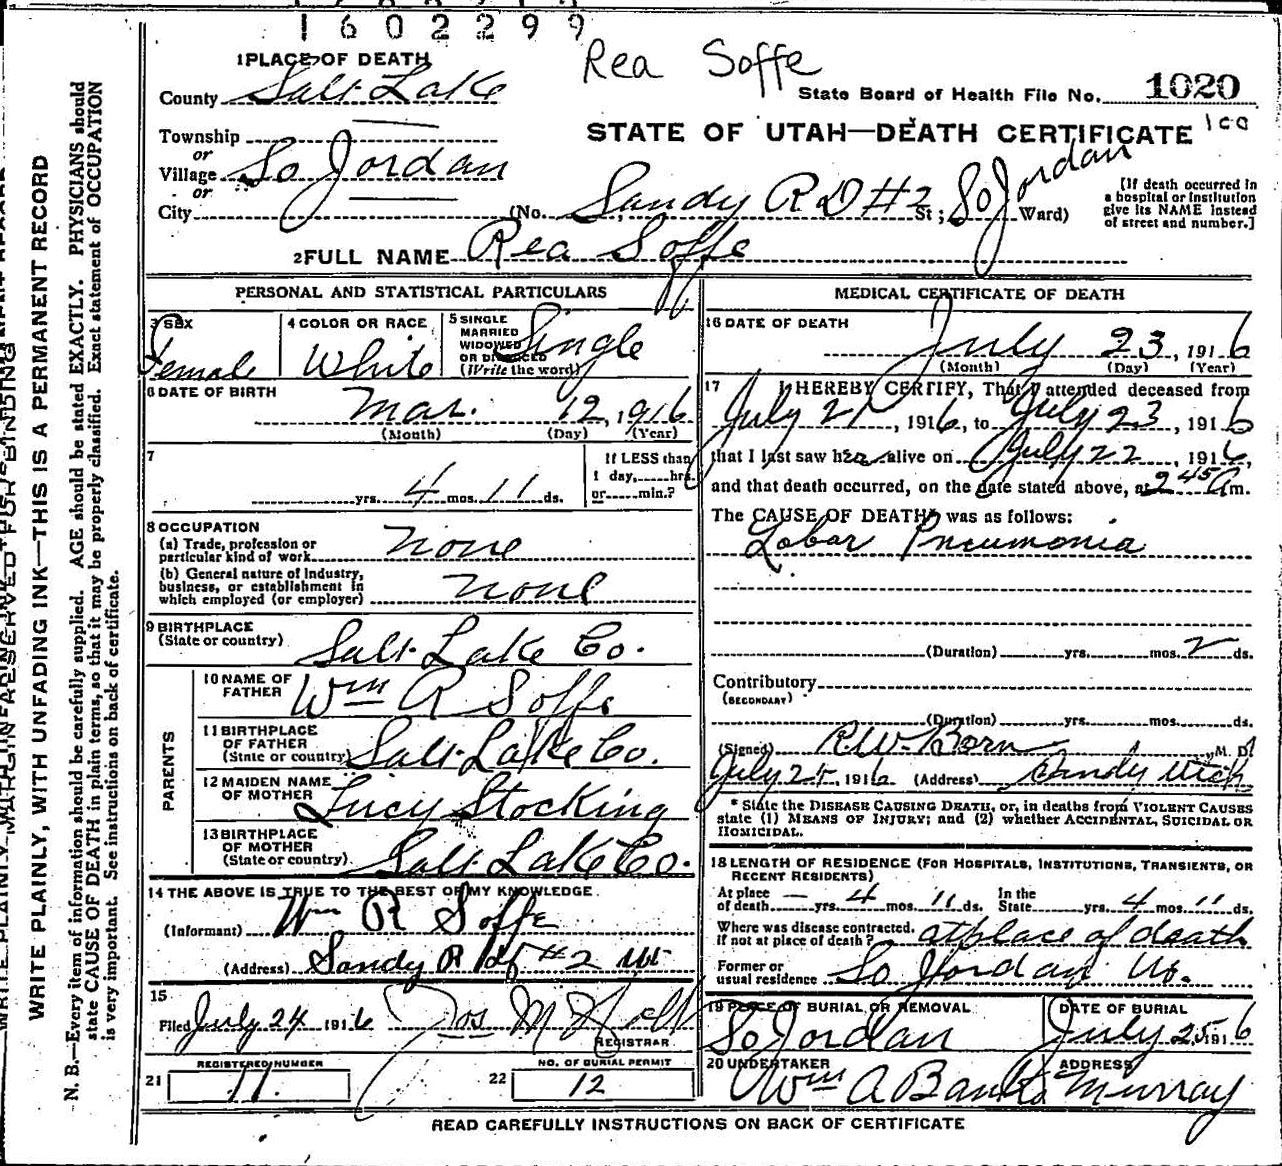 1 6 0 2 2 9 9
Rea Soffe
1 PLACE OF DEATH
County Salt Lake
State Board of Health File No. 1020
Township
STATE OF UTAH—DEATH CERTIFICATE 100
or
Village So Jordan
or
City (No. Sandy R D #2 St; So Jordan Ward)
[If death occurred in
a hospital or institution
give its NAME instead
of street and number.]
2 FULL NAME Rea Soffe
PERSONAL AND STATISTICAL PARTICULARS
3 SEX Female
4 COLOR OR RACE White
5 SINGLE
MARRIED
WIDOWED
OR DIVORCED
(Write the word) Single
6 DATE OF BIRTH
Mar. 12, 1916
(Month) (Day) (Year)
7
yrs. 4 mos. 11 ds.
If LESS than
1 day, hrs
or min.?
8 OCCUPATION
(a) Trade, profession or
particular kind of work none
(b) General nature of industry,
business, or establishment in
which employed (or employer) none
9 BIRTHPLACE
(State or country) Salt Lake Co.
PARENTS
10 NAME OF
FATHER Wm R Soffe
11 BIRTHPLACE
OF FATHER
(State or country) Salt Lake Co.
12 MAIDEN NAME
OF MOTHER Lucy Stocking
13 BIRTHPLACE
OF MOTHER
(State or country) Salt Lake Co.
14 THE ABOVE IS TRUE TO THE BEST OF MY KNOWLEDGE.
(Informant) Wm R Soffe
(Address) Sandy R #2 Ut
15
Filed July 24 1916 Jos M Holt
REGISTRAR
REGISTERED NUMBER
21 11.
NO. OF BURIAL PERMIT
22 12
MEDICAL CERTIFICATE OF DEATH
16 DATE OF DEATH
July 23, 1916
(Month) (Day) (Year)
17 I HEREBY CERTIFY, That I attended deceased from
July 21, 1916, to July 23, 1916
that I last saw her alive on July 22, 1916,
and that death occurred, on the date stated above, at 2 45 A m.
The CAUSE OF DEATH* was as follows:
Lobar Pneumonia
(Duration) yrs. mos. 2 ds.
Contributory
(SECONDARY)
(Duration) yrs. mos. ds.
(Signed) R.W. Born M. D.
July 25, 1916 (Address) Sandy Utah
* State the DISEASE CAUSING DEATH, or, in deaths from VIOLENT CAUSES
state (1) MEANS OF INJURY; and (2) whether ACCIDENTAL, SUICIDAL OR
HOMICIDAL.
18 LENGTH OF RESIDENCE (FOR HOSPITALS, INSTITUTIONS, TRANSIENTS, OR
RECENT RESIDENTS)
At place
of death — yrs. 4 mos. 11 ds. In the
State yrs. 4 mos. 11 ds.
Where was disease contracted,
if not at place of death? at place of death
Former or
usual residence So Jordan Ut.
19 PLACE OF BURIAL OR REMOVAL
So Jordan
DATE OF BURIAL
July 25, 1916
20 UNDERTAKER
Wm A Banks
ADDRESS
Murray
READ CAREFULLY INSTRUCTIONS ON BACK OF CERTIFICATE
WRITE PLAINLY, WITH UNFADING INK—THIS IS A PERMANENT RECORD
N. B.—Every item of information should be carefully supplied. AGE should be stated EXACTLY. PHYSICIANS should
state CAUSE OF DEATH in plain terms, so that it may be properly classified. Exact statement of OCCUPATION
is very important. See instructions on back of certificate.